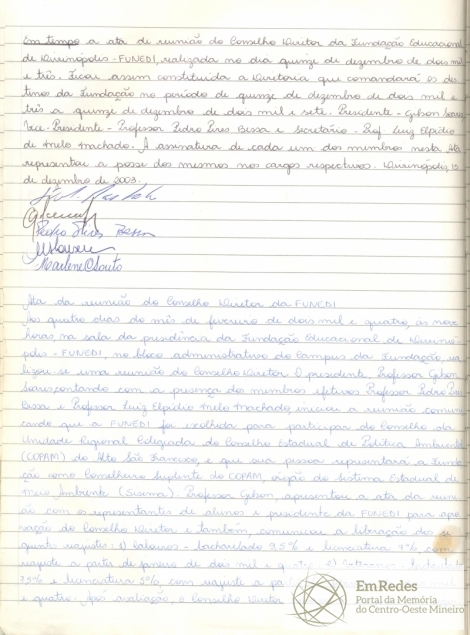 Em tempo a ata de reunião do Conselho Diretor da Fundação Educacional
de Divinópolis - FUNEDI, realizada no dia quinze de dezembro de dois mil
e três. Ficou assim constituída a Diretoria que comandará os des
tinos da Fundação no período de quinze de dezembro de dois mil e
três a quinze de dezembro de dois mil e sete Presidente - Gilson Soares
Vice-Presidente - Professor Pedro Pires Bessa e Secretário - Prof. Luiz Elpídio
de Melo Machado. A assinatura de cada um dos membros nesta Ata
representou a posse dos mesmos nos cargos respectivos. Divinópolis, 15
de dezembro de 2003.
Pedro Pires Bessa
Marlene O Souto
Ata da reunião do Conselho Diretor da FUNEDI
Aos quatro dias do mês de fevereiro de dois mil e quatro, às nove
horas, na sala da presidência da Fundação Educacional de Divinó
polis - FUNEDI, no bloco administrativo do Campus da Fundação, rea
lizou se uma reunião do Conselho Diretor. O presidente, Professor Gilson
Soares, contando com a presença dos membros efetivos Professor Pedro Pires
Bessa e Professor Luiz Elpídio Melo Machado, iniciou a reunião comuni
cando que a FUNEDI foi escolhida para participar do Conselho da
Unidade Regional Colegiada do Conselho Estadual de Política Ambiental
(COPAM) do Alto São Francisco, e que sua pessoa representará a Funda
ção como Conselheiro Suplente do COPAM, órgão do Sistema Estadual de
Meio Ambiente (Sisema). Professor Gilson, apresentou a ata da reuni
ão com os representantes de alunos e presidente da FUNEDI para apro
vação do Conselho Diretor e também, comunicou a liberação dos se
guintes reajustes: 1) calouros - bacharelado 9,5% e licenciatura 7%, com
reajuste a partir de janeiro de dois mil e
7,5% e licenciatura 5%, com reajuste a
e quatro. Após avaliação, o Conselho Diretor
EmRedes
Portal da Memória
do Centro-Oeste Mineiro